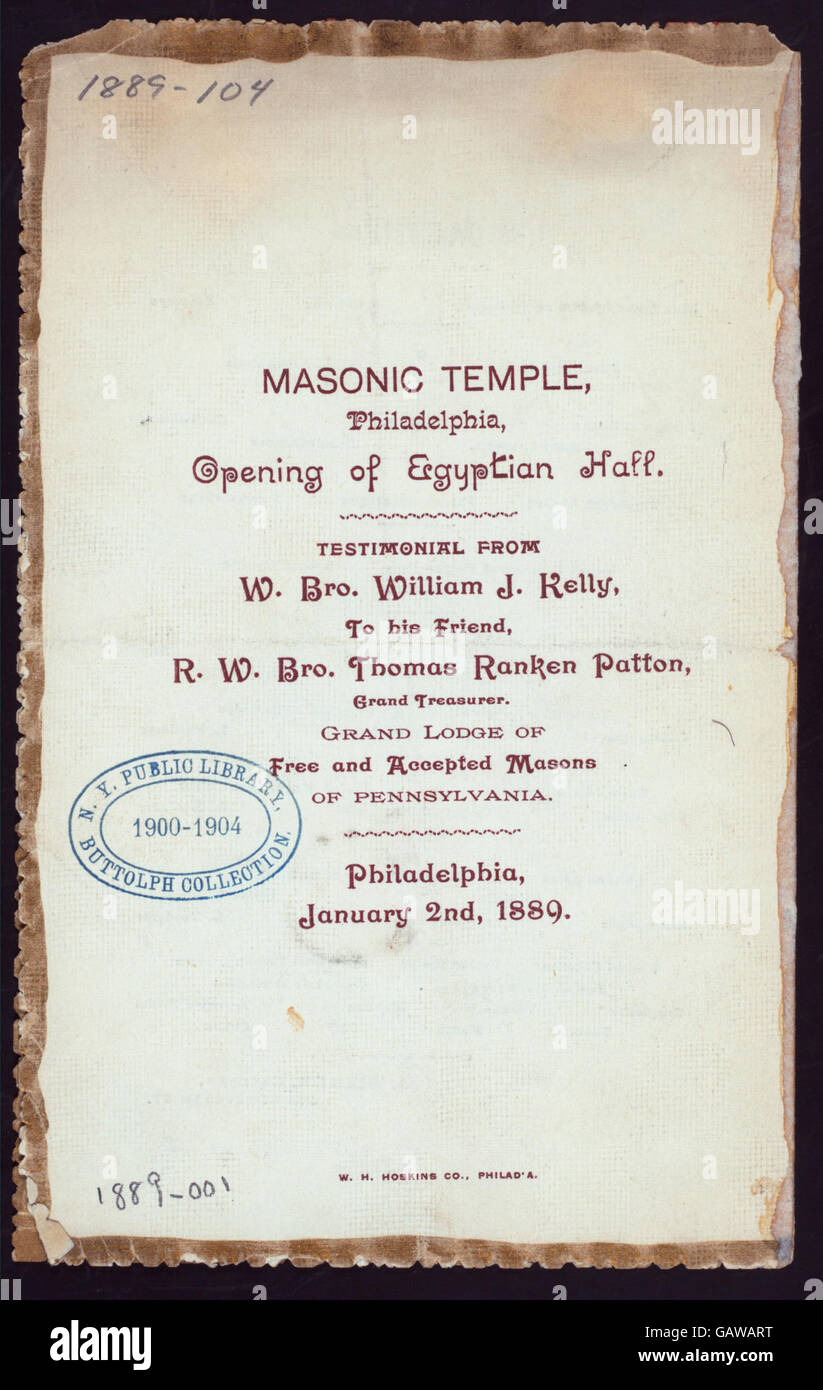 1889-104
MASONIC TEMPLE,
Philadelphia,
Opening of Egyptian Hall.
TESTIMONIAL FROM
W. Bro. William J. Kelly,
To his Friend,
R. W. Bro. Thomas Ranken Patton,
Grand Treasurer.
GRAND LODGE OF
Free and Accepted Masons
OF PENNSYLVANIA.
N. Y. PUBLIC LIBRARY,
1900-1904
BUTTOLPH COLLECTION.
Philadelphia,
January 2nd, 1889.
W. H. HOSKINS CO., PHILAD'A.
1889-001
alamy
alamy
alamy
alamy
a
a
a
a
a
a
a
a
a
alamy
Image ID: GAWART
www.alamy.com